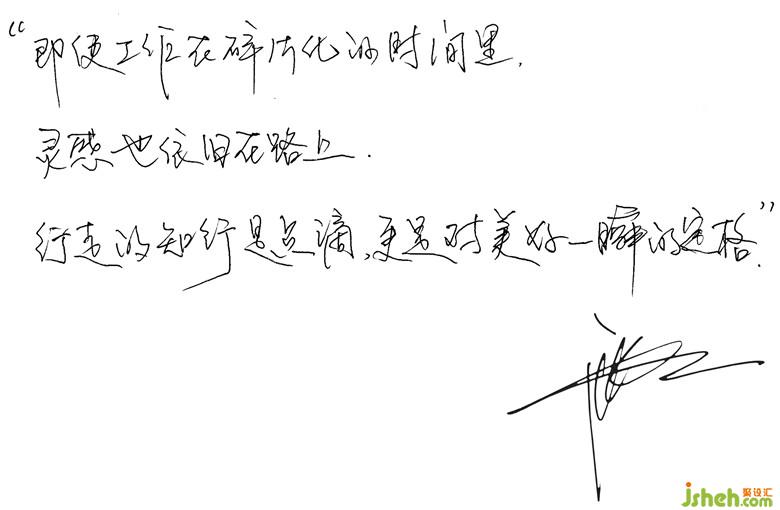 “即使工作在碎片化的时间里,
灵感也依旧在路上.
行走的知行是点滴,更是对美好一瞬的定格.”
聚设汇
jsheh.com